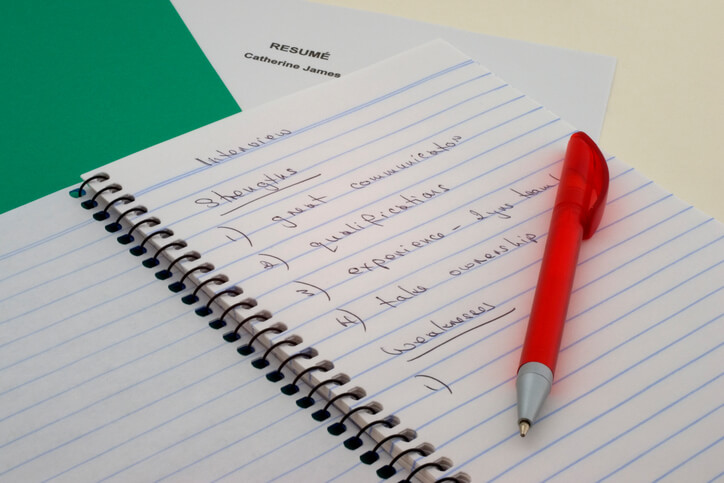 RESUMÉ
Catherine James
Interview
Strengths
1) great communication
2) qualifications
3) experience - 2yrs team
4) take ownership
Weaknesses
1)